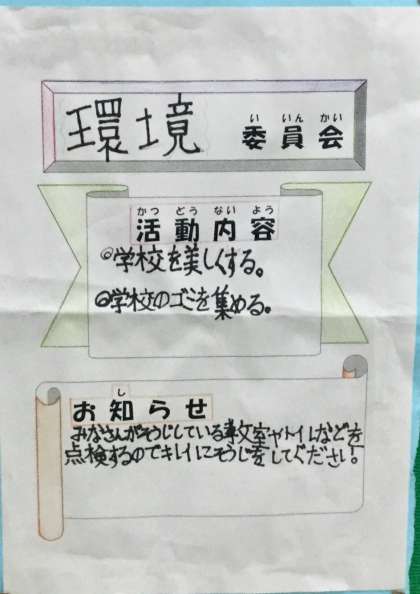 環境 委員会
いいんかい
かつどうないよう
活動内容
◎学校を美しくする。
◎学校のゴミを集める。
し
お知らせ
みなさんがそうじしている教室やトイレなどを
点検するのでキレイにそうじをしてください。